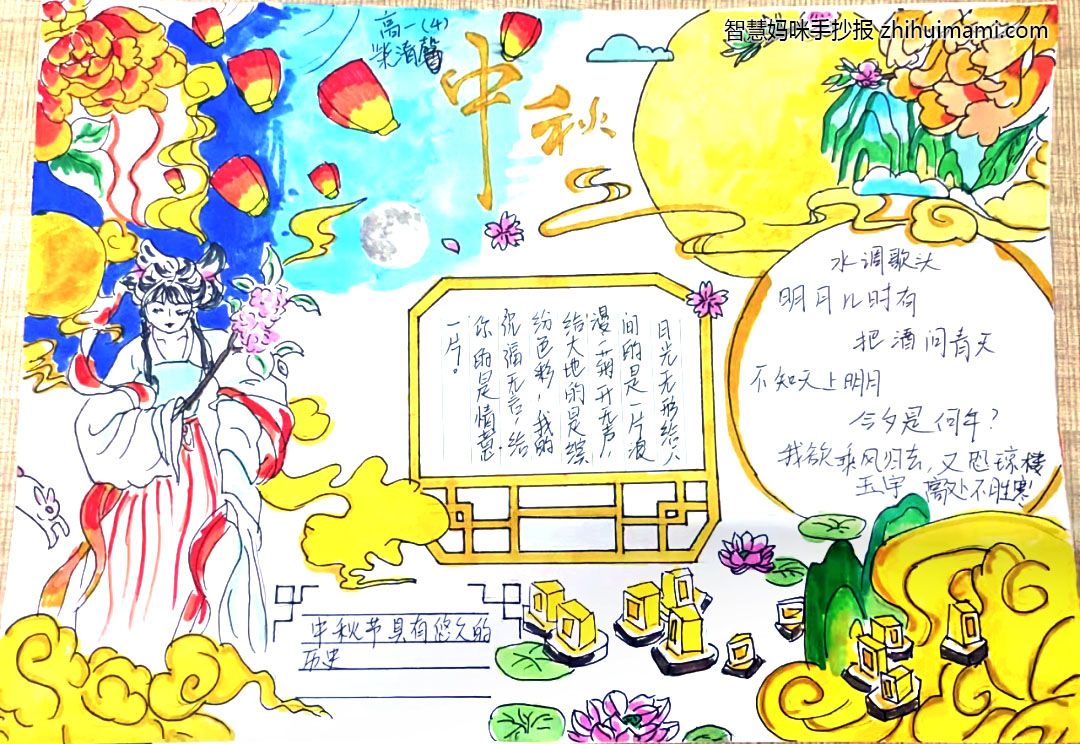 智慧妈咪手抄报 zhihuimami.com
高一(4)
柴清馨
中秋
月光无形给人
间的是一片浪
漫,菊开无声,
给大地的是缤
纷色彩,我的
祝福无言,给
你的是情意
一片。
水调歌头
明月几时有
把酒问青天
不知天上明月
今夕是何年?
我欲乘风归去,又恐琼楼
玉宇 高处不胜寒
中秋节具有悠久的
历史